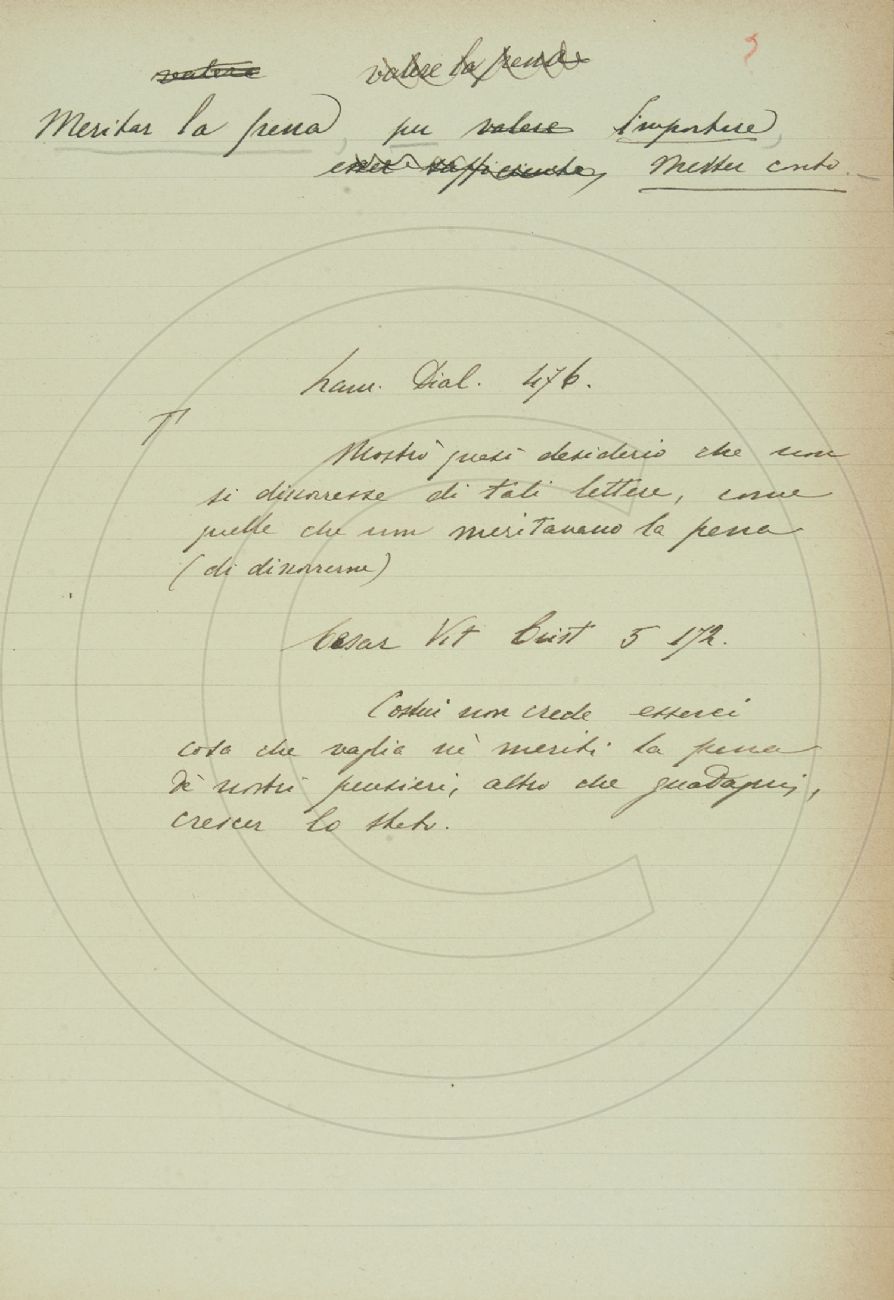 valere valere la pena
Meritar la pena, per valere Importare,
esser sufficiente, Metter conto.
Dial. 476.
Mostrò quasi desiderio che non
si discorresse di tali lettere, come
quelle che non meritavano la pena
(di discorrerne)
Cesar Vit Crist 5 172.
Costui non crede esserci
cosa che vaglia nè meriti la pena
de' nostri pensieri, altro che guadagni,
crescer lo stato.